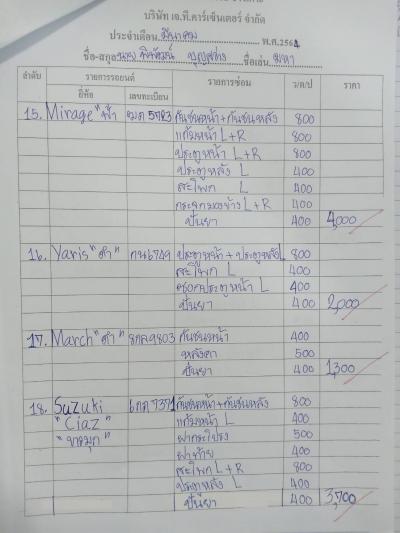 บริษัท เจ.ที.คาร์เซ็นเตอร์ จำกัด
ประจำเดือน มีนาคม พ.ศ.256
ชื่อ-สกุล นาย บุญสว่าง ชื่อเล่น
ลำดับ รายการรถยนต์ รายการซ่อม ว/ด/ป ราคา
ยี่ห้อ เลขทะเบียน
15. Mirage "ฟ้า" ขมต 5783 กันชนหน้า+กันชนหลัง 800
แก้มหน้า L+R 800
ประตูหน้า L+R 800
ประตูหลัง L 400
สะโพก L 400
กระจกมองข้าง L+R 400
ปั่นยา 400 4,000
16. Yaris "ดำ" กน6749 ประตูหน้า+ประตูหลังL 800
สะโพก L 400
ประตูหน้า L 400
ปั่นยา 400 2,000
17. March "ดำ" 8กล9803 กันชนหน้า 400
หลังคา 500
ปั่นยา 400 1,300
18. Suzuki 6กด7371 กันชนหน้า+กันชนหลัง 800
"Ciaz" แก้มหน้า L 400
"ขาวมุก" ฝากระโปรง 500
ฝาท้าย 400
สะโพก L+R 800
ประตูหลัง L 400
ปั่นยา 400 3,700